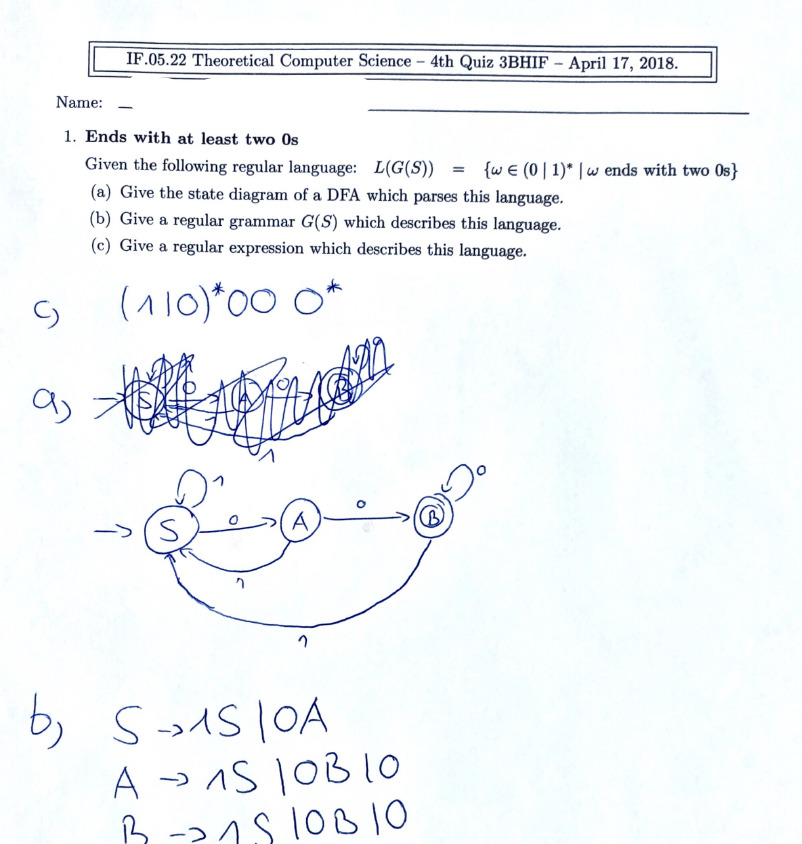 IF.05.22 Theoretical Computer Science – 4th Quiz 3BHIF – April 17, 2018.
Name:
1. Ends with at least two 0s
Given the following regular language: L(G(S)) = {ω ∈ (0 | 1)* | ω ends with two 0s}
(a) Give the state diagram of a DFA which parses this language.
(b) Give a regular grammar G(S) which describes this language.
(c) Give a regular expression which describes this language.
c) (1|0)*00 0*
a) S 0 A 0 B
1
1 0
→ S 0 A 0 B
1
1
b) S → 1S | 0A
A → 1S | 0B | 0
B → 1S | 0B | 0